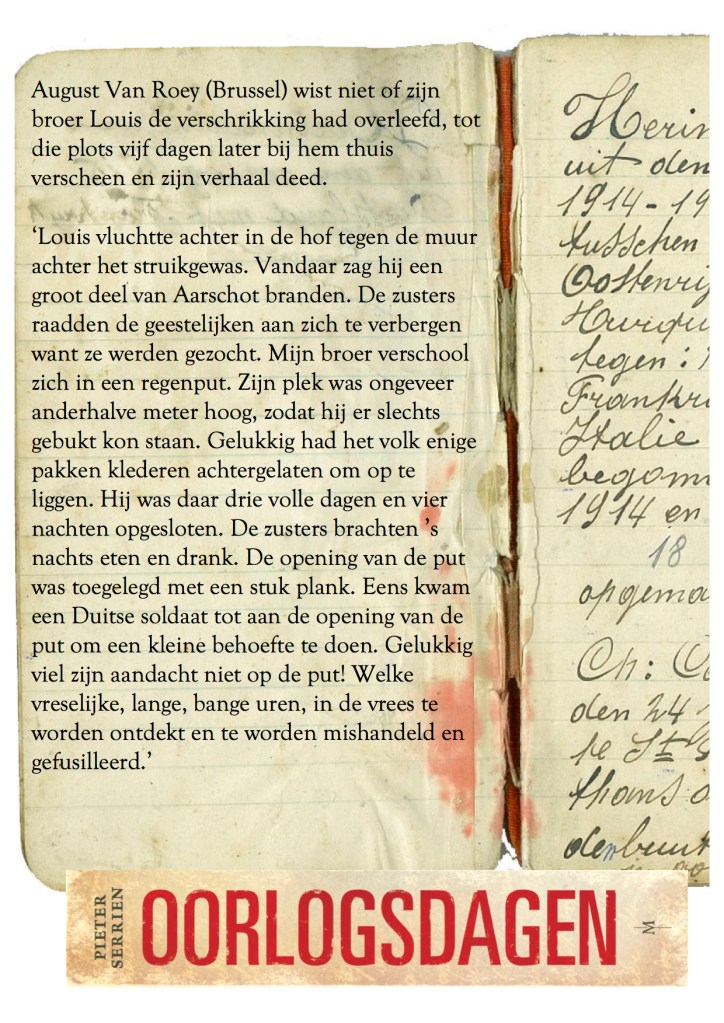 August Van Roey (Brussel) wist niet of zijn
broer Louis de verschrikking had overleefd, tot
die plots vijf dagen later bij hem thuis
verscheen en zijn verhaal deed.
‘Louis vluchtte achter in de hof tegen de muur
achter het struikgewas. Vandaar zag hij een
groot deel van Aarschot branden. De zusters
raadden de geestelijken aan zich te verbergen
want ze werden gezocht. Mijn broer verschool
zich in een regenput. Zijn plek was ongeveer
anderhalve meter hoog, zodat hij er slechts
gebukt kon staan. Gelukkig had het volk enige
pakken klederen achtergelaten om op te
liggen. Hij was daar drie volle dagen en vier
nachten opgesloten. De zusters brachten ’s
nachts eten en drank. De opening van de put
was toegelegd met een stuk plank. Eens kwam
een Duitse soldaat tot aan de opening van de
put om een kleine behoefte te doen. Gelukkig
viel zijn aandacht niet op de put! Welke
vreselijke, lange, bange uren, in de vrees te
worden ontdekt en te worden mishandeld en
gefusilleerd.’
Herin
uit den
1914-19
tusschen
Oostenrij
tegen:
Frankr
Italie
begonn
1914 en
18
opgema
Ch:
den 24
te St
thans
PIETER
SERRIEN
OORLOGSDAGEN
M